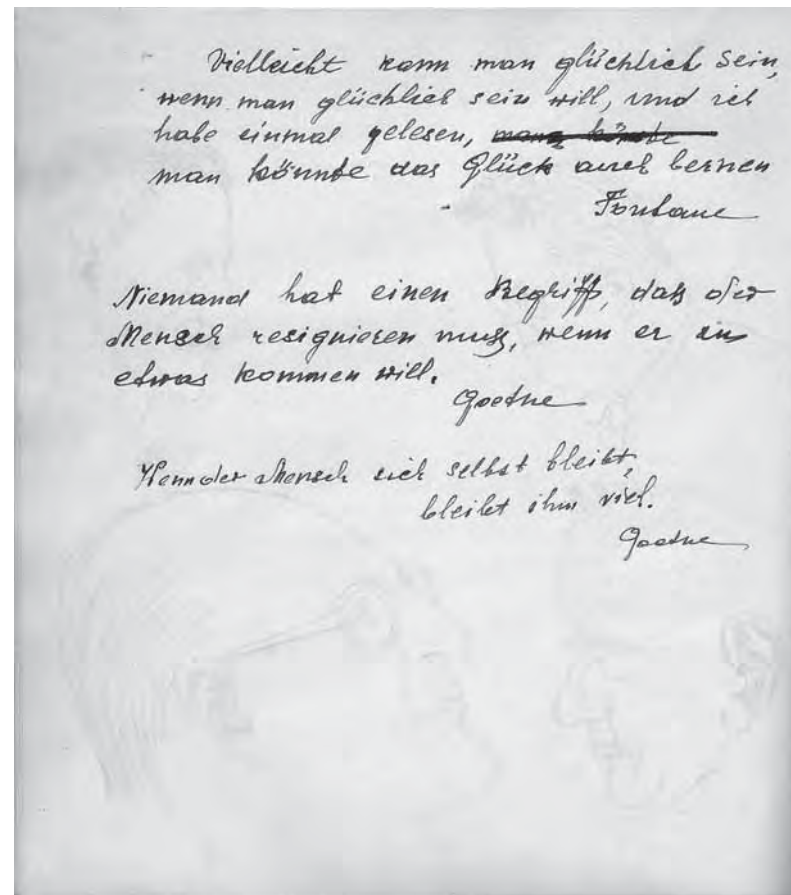 Vielleicht kann man glücklich sein,
wenn man glücklich sein will, und ich
habe einmal gelesen, man könnte
man könnte das Glück auch lernen
Fontane
Niemand hat einen Begriff, daß der
Mensch resignieren muß, wenn er zu
etwas kommen will.
Goethe
Wenn der Mensch sich selbst bleibt,
bleibt ihm viel.
Goethe